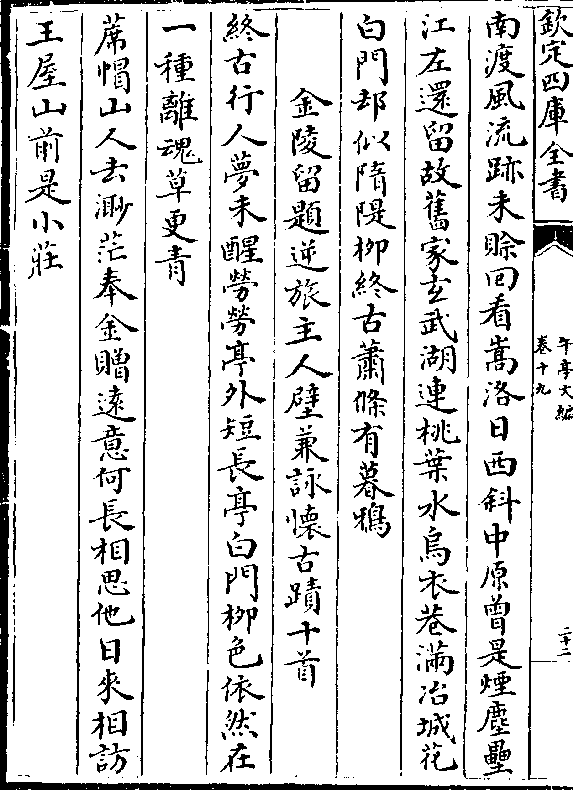 欽定四庫全書
午亭文編
卷十九
二十二
南渡風流跡未賖回看嵩洛日西斜中原曾是煙塵壘
江左還留故舊家玄武湖連桃葉水烏衣巷滿冶城花
白門却似隋隄柳終古蕭條有暮鴉
金陵留題逆旅主人壁兼詠懷古蹟十首
終古行人夢未醒勞勞亭外短長亭白門柳色依然在
一種離魂草更青
蓆帽山人去渺茫奉金贈遠意何長相思他日來相訪
王屋山前是小莊